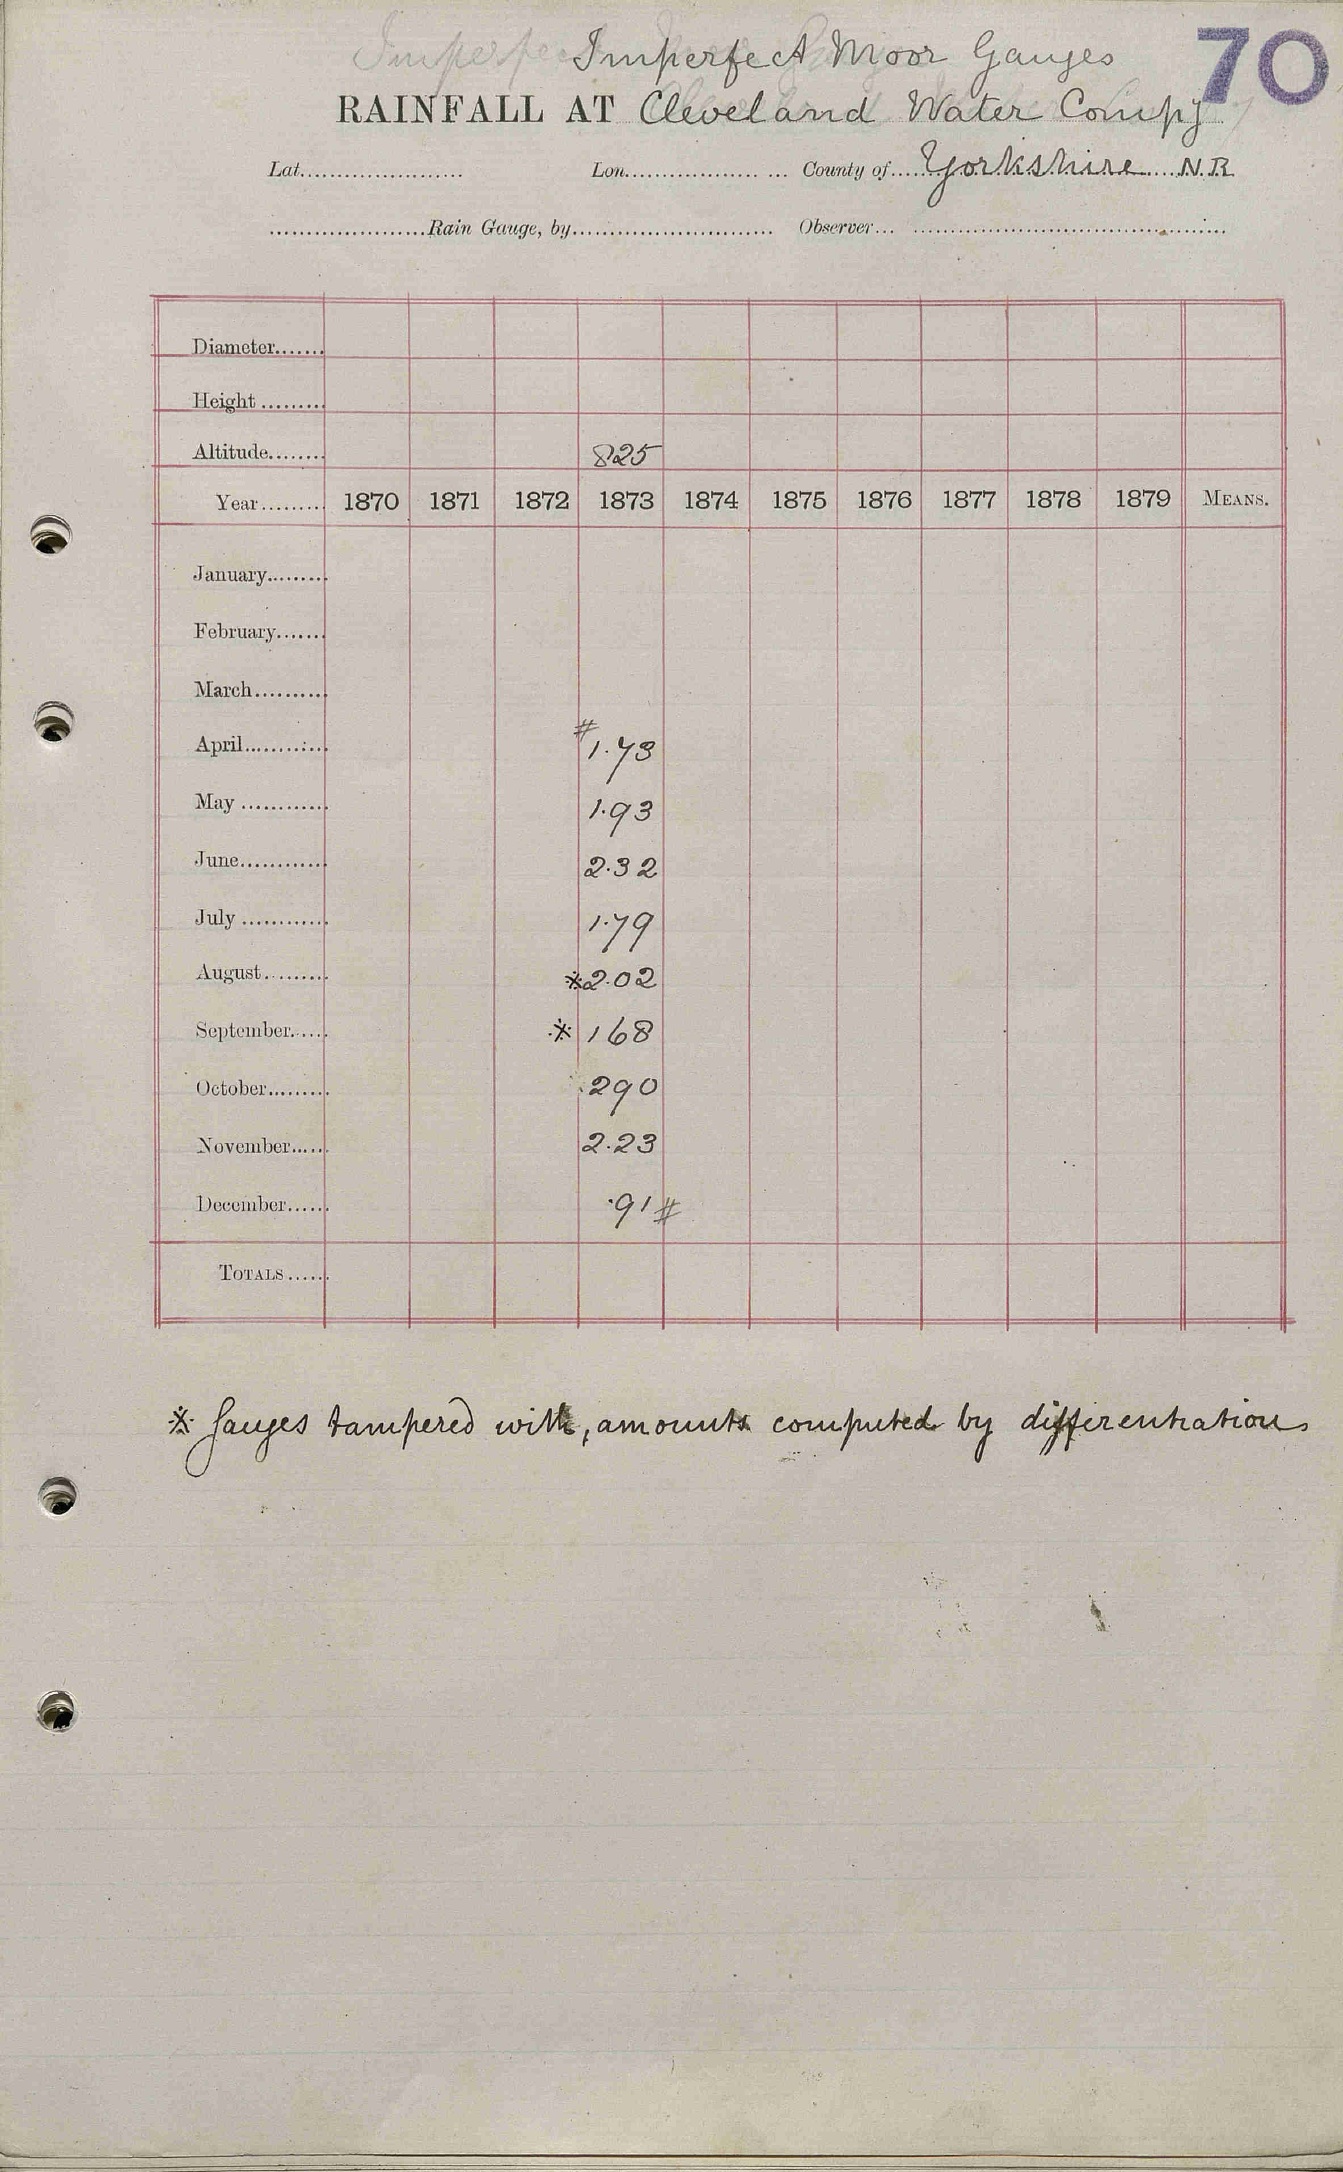 Imperfect Moor Gauges 70
RAINFALL AT Cleveland Water Compy
Lat. Lon. County of Yorkshire N.R
Rain Gauge, by Observer
Diameter
Height
Altitude 825
Year 1870 1871 1872 1873 1874 1875 1876 1877 1878 1879 MEANS.
January
February
March
April #1.73
May 1.93
June 2.32
July 1.79
August ※2.02
September ※ 168
October 290
November 2.23
December .91#
TOTALS
※ Gauges tampered with, amounts computed by differentiation